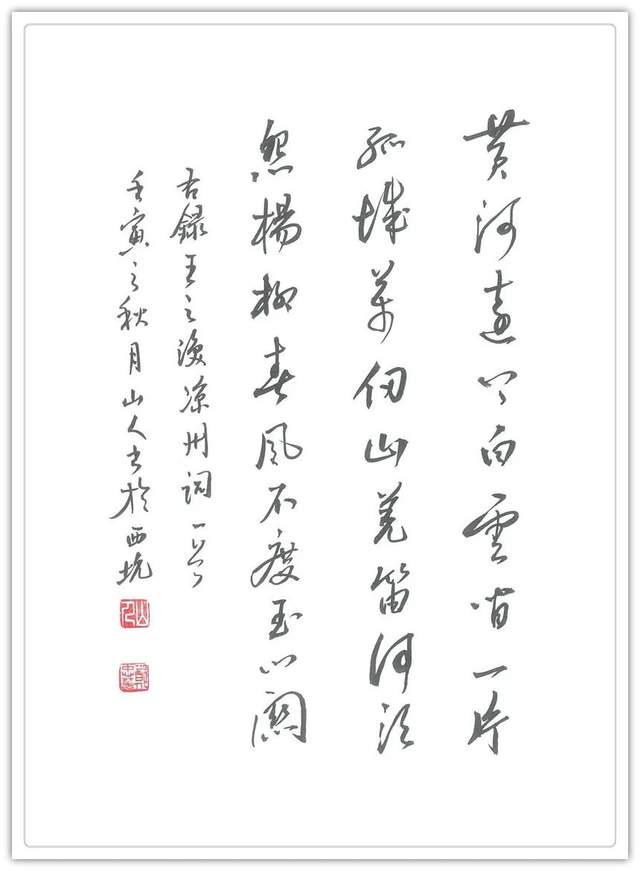 黄河遠上白雲間一片
孤城萬仞山羌笛何須
怨楊柳春風不度玉門關
右録王之渙涼州詞一首
壬寅之秋月山人書於西坑
山人